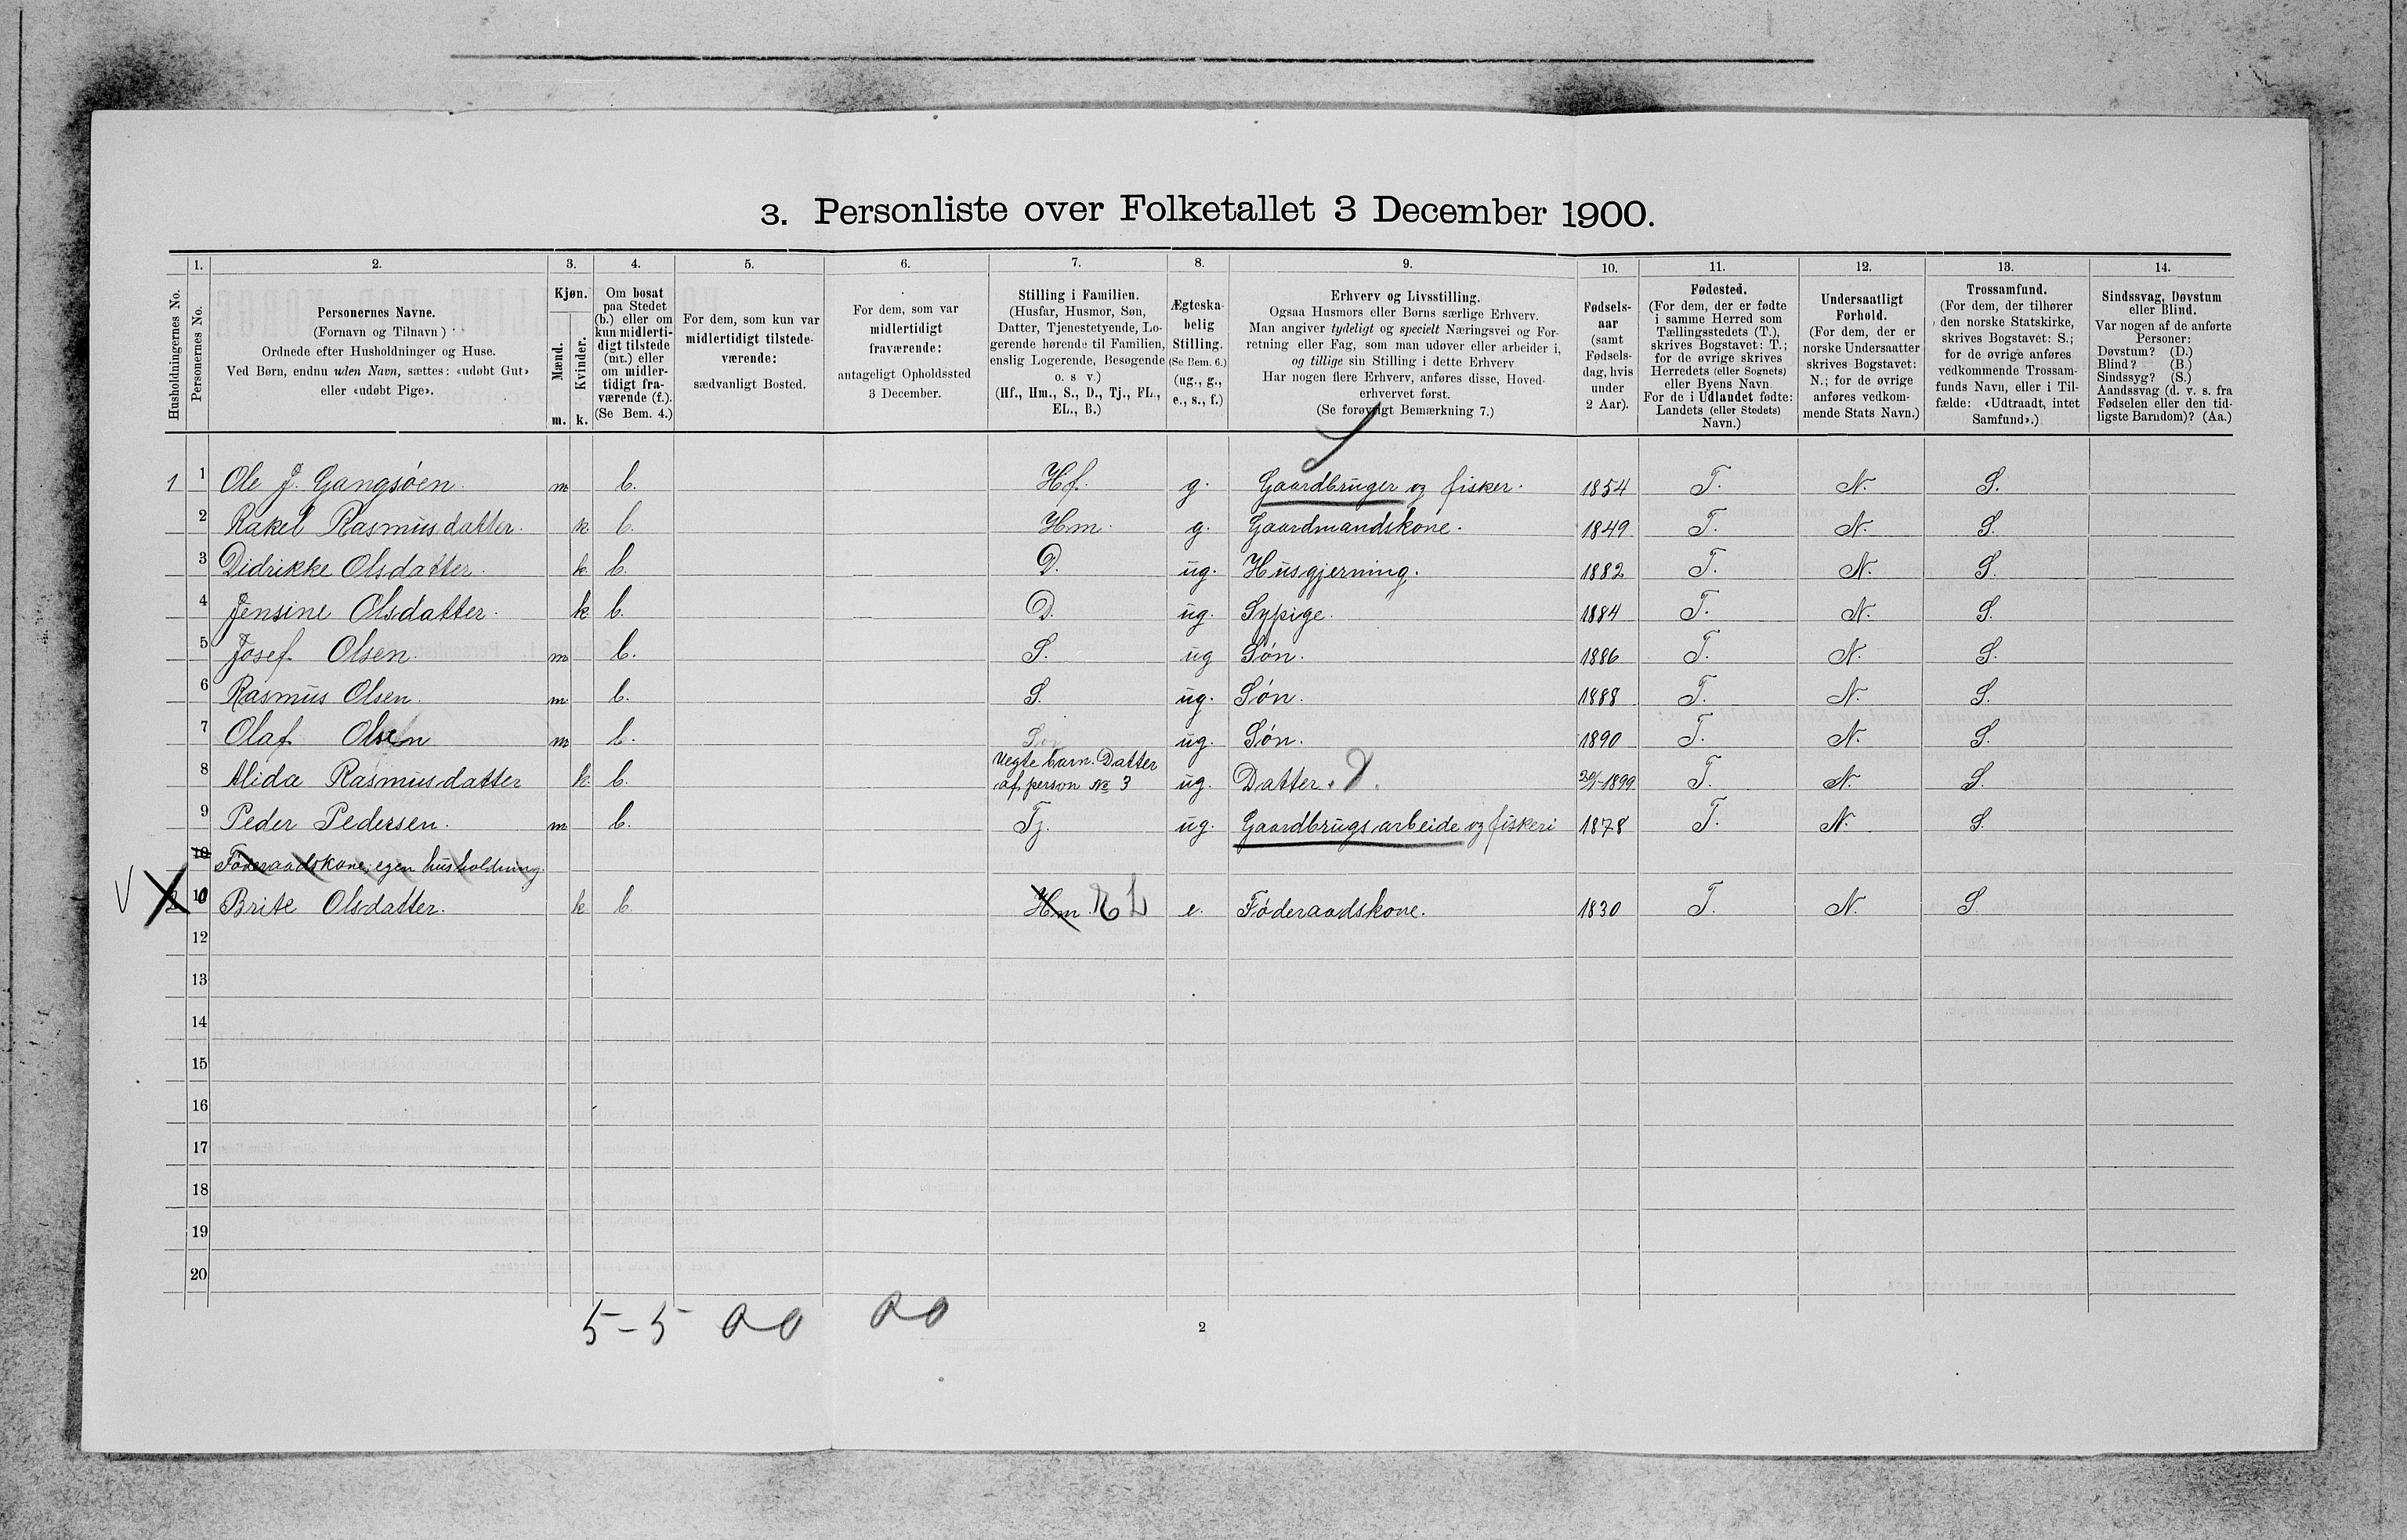 3. Personliste over Folketallet 3 December 1900.
1. 2. 3. 4. 5. 6. 7. 8. 9. 10. 11. 12. 13. 14.
Husholdningernes No.
Personernes No.
Personernes Navne.
(Fornavn og Tilnavn)
Ordnede efter Husholdninger og Huse.
Ved Børn, endnu uden Navn, sættes: «udøbt Gut»
eller «udøbt Pige».
Kjøn.
Mænd.
Kvinder.
m. k.
Om bosat
paa Stedet
(b.) eller om
kun midlerti-
digt tilstede
(mt.) eller
om midler-
tidigt fra-
værende (f.).
(Se Bem. 4.)
For dem, som kun var
midlertidigt tilstede-
værende:
sædvanligt Bosted.
For dem, som var
midlertidigt
fraværende:
antageligt Opholdssted
3 December.
Stilling i Familien.
(Husfar, Husmor, Søn,
Datter, Tjenestetyende, Lo-
gerende hørende til Familien,
enslig Logerende, Besøgende
o. s v.)
(Hf., Hm., S., D., Tj., FL.,
EL., B.)
Ægteska-
belig
Stilling.
(Se Bem. 6.)
(ug., g.,
e., s., f.)
Erhverv og Livsstilling.
Ogsaa Husmors eller Børns særlige Erhverv.
Man angiver tydeligt og specielt Næringsvei og For-
retning eller Fag, som man udøver eller arbeider i,
og tillige sin Stilling i dette Erhverv
Har nogen flere Erhverv, anføres disse, Hoved-
erhvervet først.
(Se forøvrigt Bemærkning 7.)
Fødsels-
aar
(samt
Fødsels-
dag, hvis
under
2 Aar).
Fødested.
(For dem, der er fødte
i samme Herred som
Tællingsstedets (T.),
skrives Bogstavet: T.;
for de øvrige skrives
Herredets (eller Sognets)
eller Byens Navn
For de i Udlandet fødte:
Landets (eller Stedets)
Navn.)
Undersaatligt
Forhold.
(For dem, der er
norske Undersaatter
skrives Bogstavet:
N.; for de øvrige
anføres vedkom-
mende Stats Navn.)
Trossamfund.
(For dem, der tilhører
den norske Statskirke,
skrives Bogstavet: S.;
for de øvrige anføres
vedkommende Trossam-
funds Navn, eller i Til-
fælde: «Udtraadt, intet
Samfund».)
Sindssvag, Døvstum
eller Blind.
Var nogen af de anførte
Personer:
Døvstum? (D.)
Blind? (B.)
Sindssyg? (S.)
Aandssvag (d. v. s. fra
Fødselen eller den tid-
ligste Barndom)? (Aa.)
1 1 Ole J. Gangsøen. m b. Hf. g. Gaardbruger og fisker. 1854 T. N. S.
2 Rakel Rasmusdatter. k b. Hm. g. Gaardmandskone. 1849 T. N. S.
3 Didrikke Olsdatter. k. b. D. ug. Husgjerning. 1882 T. N. S.
4 Jensine Olsdatter. k b. D. ug. Sypige. 1884 T. N. S.
5 Josef Olsen. m b. S. ug Søn. 1886 T. N. S.
6 Rasmus Olsen. m b. S. ug. Søn. 1888 T. N. S.
7 Olaf Olsen m b. Søn ug. Søn. 1890 T. N. S.
8 Alida Rasmusdatter k. b. Uegte barn. Datter
af person No 3 ug. Datter. 20/1-1899. T. N. S.
9 Peder Pedersen. m b. Tj. ug. Gaardbrugsarbeide og fiskeri 1878 T. N. S.
10 Føderaadskone, egen husholdning.
V 2 10 Brite Olsdatter. k b. Hm. EL e. Føderaadskone. 1830 T. N. S.
12
13
14
15
16
17
18
19
20
5-5 00 00
2